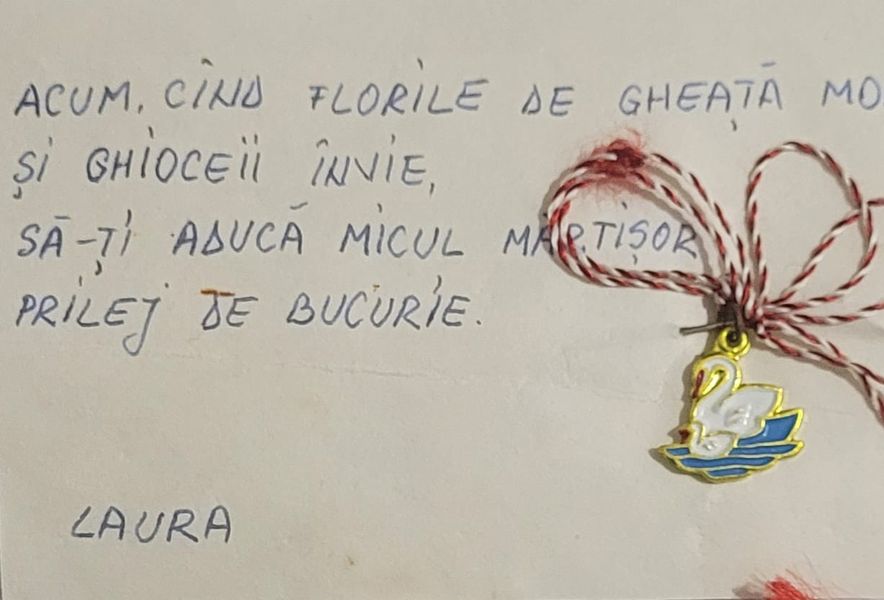 ACUM, CÎND FLORILE DE GHEAȚĂ MO
ȘI GHIOCEII ÎNVIE,
SĂ-ȚI ADUCĂ MICUL MĂRȚIȘOR
PRILEJ DE BUCURIE.
LAURA